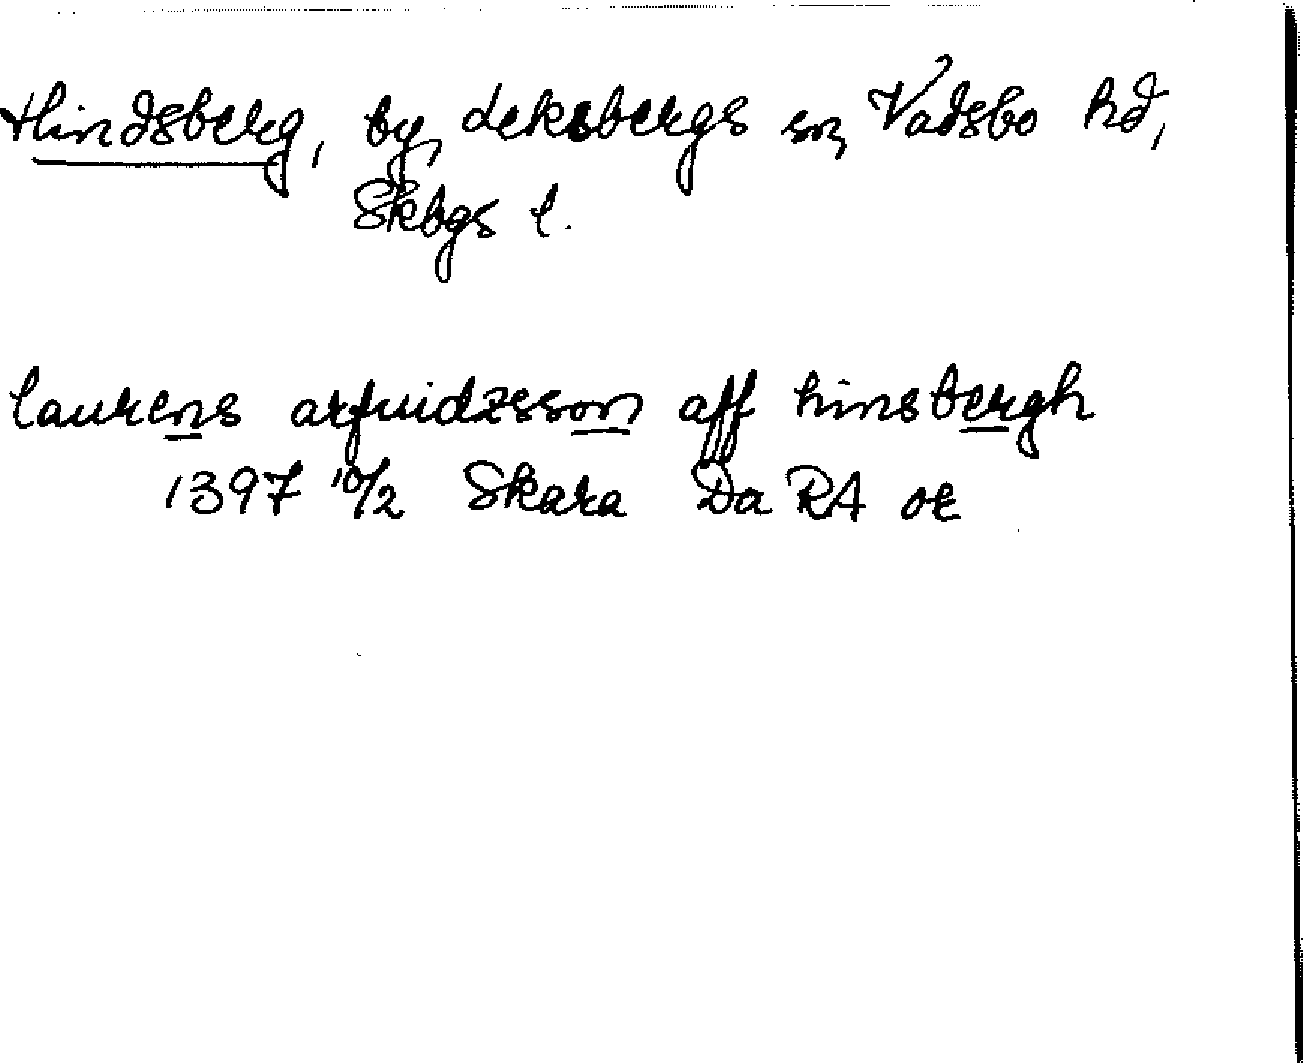 Hindsberg, by, Leksbergs sn, Vadsbo hd,
Skbgs l.
laurens arfuidzsson aff hinsbergh
1397 10/2 Skara Da RA or